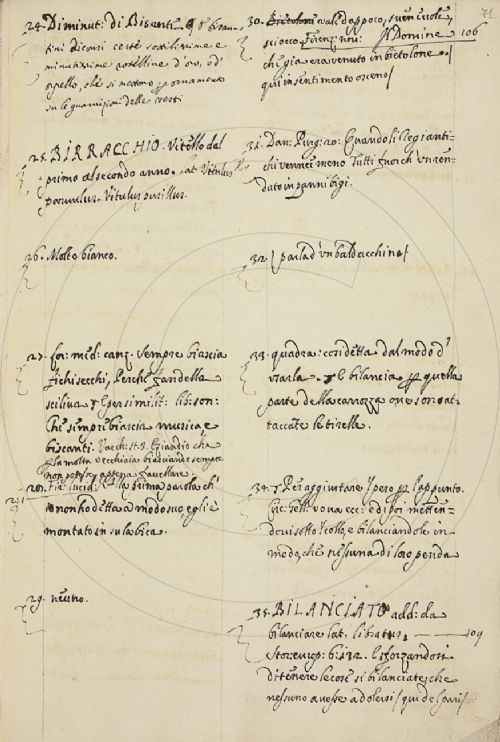 71
24. Diminut: di Bisante
tini diconsi certe sottilissime e
minutissime rotelline d'oro, od'
orpello, che si mettono per ornamento
su le guarnizioni delle vesti
25. BIRRACCHIO. Vitello dal
primo al secondo anno. Lat. Vitulus
paruulus. Vitulus pusillus.
26. Molto bianco.
27. for: med: canz. Sempre biascia
fichi secchi, Perché gandella
sciliva lib: son:
Che sempre biascia musica e
biscanti. Varch: st: Giandio che
la molta vecchiaia biasciando sempre
non potesse appena favellare.
28. Fir: Lucid: la prima parola ch'
io non ho detta a modo suo, egli è
montato in su la bica.
29. neutro.
30. Bietolone vale dappoco, svenevole,
sciocco. Firenz: nov: Il Domine 106
che già era venuto in bietolone
qui in sentimento osceno/
31. Dan: Purg: 20: Quando li Regi anti-
chi venner meno Tutti fuorch' un ren-
dato in panni bigi.
32. /parla d'un baldacchino/
33. quadra: così detta dal modo d'
usarla. E bilancia per quella
parte della carrozza ove son at-
taccate le tirelle.
34. Per aggiustare 'l peso per l'appunto.
Circ: Gell: vova ecc: ed poi metten-
dovi sotto 'l collo, e bilanciandole in
modo, che nessuna di loro penda
35. BILANCIATO add: da
bilanciare Lat. libratus. 109
Stor: europ: 6: 132. Esforzandosi
di tenere le cose sì bilanciate, che
nessuno avesse a dolersi /qui de' pari/